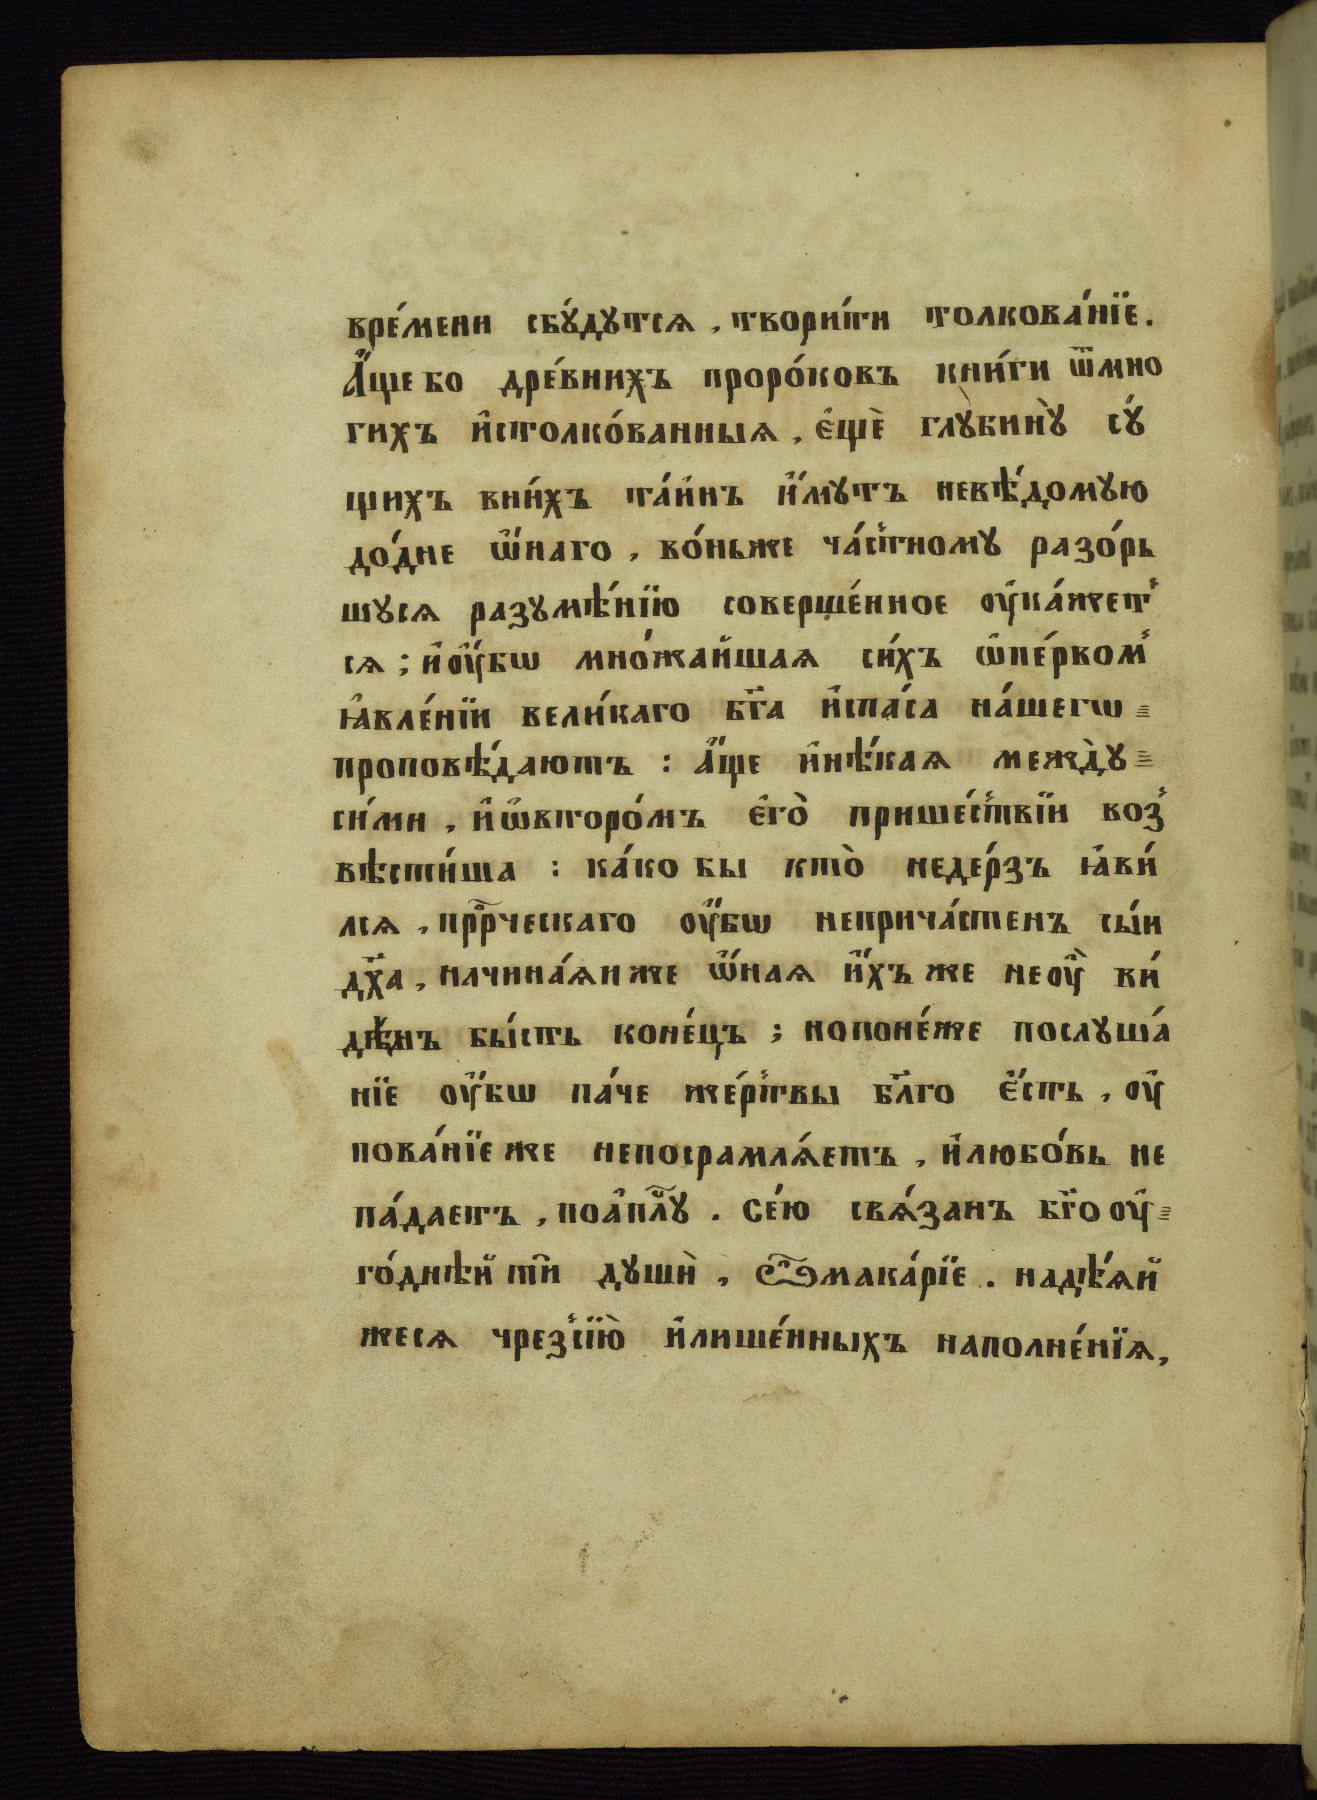 вре́мени сбꙋ́дꙋтсѧ , твори́ти толкова́нїе .
А҆́ще бо дре́внихъ проро́ковъ кни́ги ѿмно
гихъ и҆столко́ванныѧ , є҆щѐ глꙋбинꙋ̀ сꙋ́
щихъ вни́хъ та́инъ и҆́мꙋтъ невѣ́домꙋю
до́дне ѡ҆́наго , во́ньже ча́стномꙋ разо́рь
шꙋсѧ разꙋмѣ́нїю соверше́нное ᲂу҆ка́жет
сѧ ; и҆ᲂу҆́бѡ мно́жайшаѧ си́хъ ѡ҆пе́рвом
ꙗ҆вле́нїи вели́каго бг҃а и҆спа́са на́шегѡ
проповѣ́даютъ : а҆́ще и҆нѣ́каѧ междꙋ̀
си́ми , и҆ѡ҆второ́мъ є҆гѡ̀ прише́ствїи воз
вѣсти́ша : ка́ко бы кто̀ неде́рзъ ꙗ҆ви́
лсѧ , прⷪ҇рческаго ᲂу҆́бѡ неприча́стенъ сы́и
дх҃а , начина́ѧиже ѡ҆́наѧ и҆́хъже неᲂу҆̀ ви́
дѣнъ бы́сть коне́цъ ; нопоне́же послꙋша́
нїе ᲂу҆́бѡ па́че же́ртвы бл҃го є҆́сть , ᲂу҆
пова́нїеже непосрамлѧ́етъ , и҆любо́вь не
па́даетъ , поа҆пⷭ҇лꙋ . Се́ю свѧ́занъ бг҃оᲂу҆
го́днѣй тѝ дꙋшѝ , Ѽмака́рїе . надѣ́ѧй
жесѧ чрезсїю̀ и҆лише́нныхъ наполне́нїѧ ,